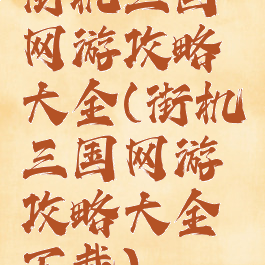 街机三国
网游攻略
大全(街机
三国网游
攻略大全
下载)